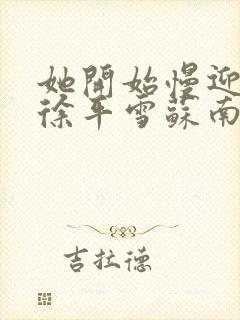 她開始慢迎
徐平雪蘇南
吉拉德